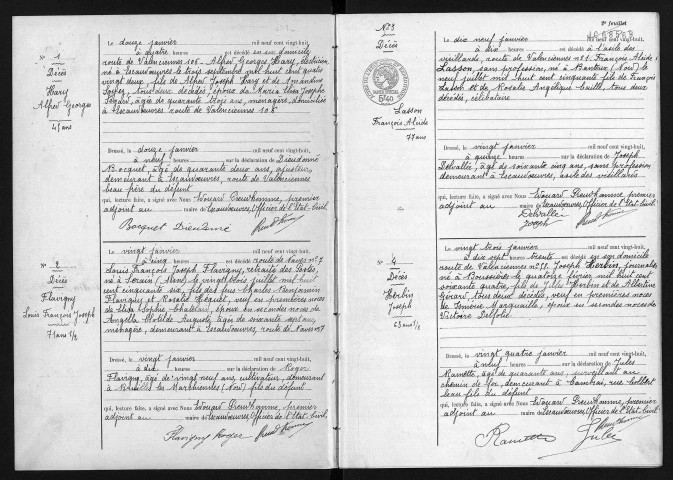 N° 1
Décès
Hary
Alfred Georges
45 ans
Le douze janvier mil neuf cent vingt-huit,
à quatre heures est décédé en son domicile
route de Valenciennes 108 Alfred Georges Hary,
né à Escaudœuvres le trois septembre mil huit cent quatre
vingt deux, fils de Alfred Joseph Hary et de Amandine
tous deux décédés, époux de Maria Elisa Josephe
âgée de quarante trois ans, ménagère, domiciliée
à Escaudœuvres route de Valenciennes 108
Dressé, le douze janvier mil neuf cent vingt-huit,
à neuf heures sur la déclaration de Dieudonné
Bocquet, âgé de quarante deux ans, ajusteur,
demeurant à Escaudœuvres, route de Valenciennes
beau père du défunt
qui, lecture faite, a signé avec Nous Edouard premier
adjoint au maire de Escaudœuvres, Officier de l'Etat-Civil
Bocquet Dieudonné
N° 2
Décès
Flavigny
Louis François Joseph
71 ans 1/2
Le vingt janvier mil neuf cent vingt-huit,
à cinq heures est décédé route de Naves n° 7
Louis François Joseph Flavigny, retraité des
né à le vingt trois juillet mil huit
cent cinquante six, fils des feus Charles Benjamin
Flavigny et Rosalie veuf en premières noces
de Elisa Sophie Chatelain, époux en secondes noces de
Angèle Clotilde âgée de soixante sept ans
ménagère, demeurant à Escaudœuvres, route de Naves n° 7
Dressé, le vingt janvier mil neuf cent vingt-huit,
à dix heures sur la déclaration de Roger
Flavigny, âgé de vingt neuf ans, cultivateur, demeurant
à lez Marchiennes (Nord) fils du défunt
qui, lecture faite, a signé avec Nous Edouard premier
adjoint au maire de Escaudœuvres, Officier de l'Etat-Civil
Flavigny Roger
N° 3
Décès
Lasson
François Alcide
77 ans
2e feuillet
Le dix neuf janvier mil neuf cent vingt-huit,
à dix heures est décédé à l'asile des
vieillards, route de Valenciennes n° 1, François Alcide
Lasson, sans profession, né à Banteux (Nord) le
neuf juillet mil huit cent cinquante fils de François
Lasson et de Rosalie Angélique tous deux
décédés, célibataire
Dressé, le vingt janvier mil neuf cent vingt-huit,
à quinze heures sur la déclaration de Joseph
Delvallée, âgé de soixante cinq ans, sans profession
demeurant à Escaudœuvres, asile des vieillards
qui, lecture faite, a signé avec Nous Edouard premier
adjoint au maire de Escaudœuvres, Officier de l'Etat-Civil
Delvallée
Joseph
N° 4
Décès
Herbin
Joseph
63 ans 1/2
Le vingt trois janvier mil neuf cent vingt-huit,
à dix sept heures trente est décédé en son domicile
route de Valenciennes n° 51, Joseph Herbin, journalier
né à Boussières le quatorze février mil huit cent
soixante quatre, fils de Jules Herbin et de Albertine
Gérard tous deux décédés, veuf en premières noces
de époux en secondes noces de
Victoire Delfolie
Dressé, le vingt quatre janvier mil neuf cent vingt-huit,
à neuf heures sur la déclaration de Jules
Ramette, âgé de quarante ans, surveillant au
chemin de fer, demeurant à Cambrai, rue
beau fils du défunt
qui, lecture faite, a signé avec Nous Edouard premier
adjoint au maire de Escaudœuvres, Officier de l'Etat-Civil
Ramette Jules